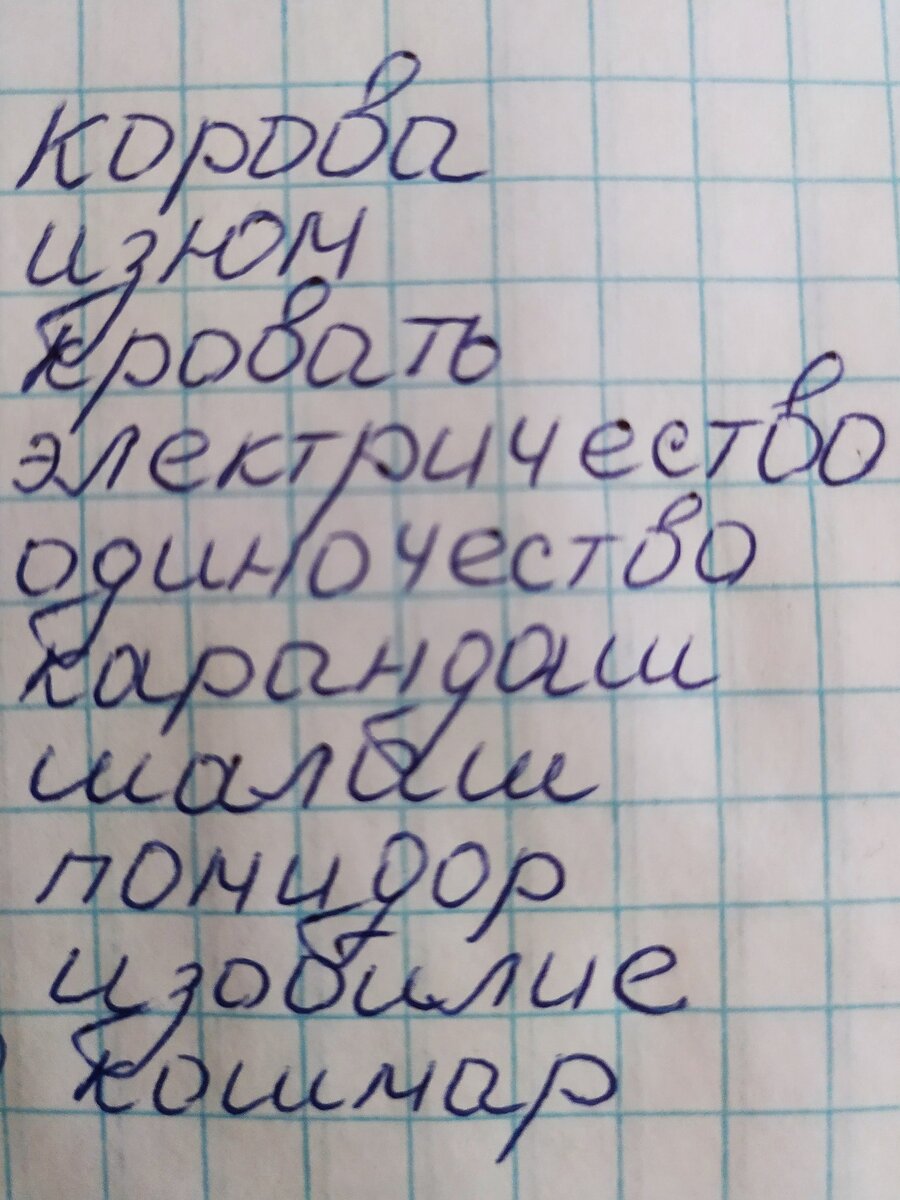 корова
изюм
кровать
электричество
одиночество
карандаш
шалаш
помидор
изобилие
кошмар